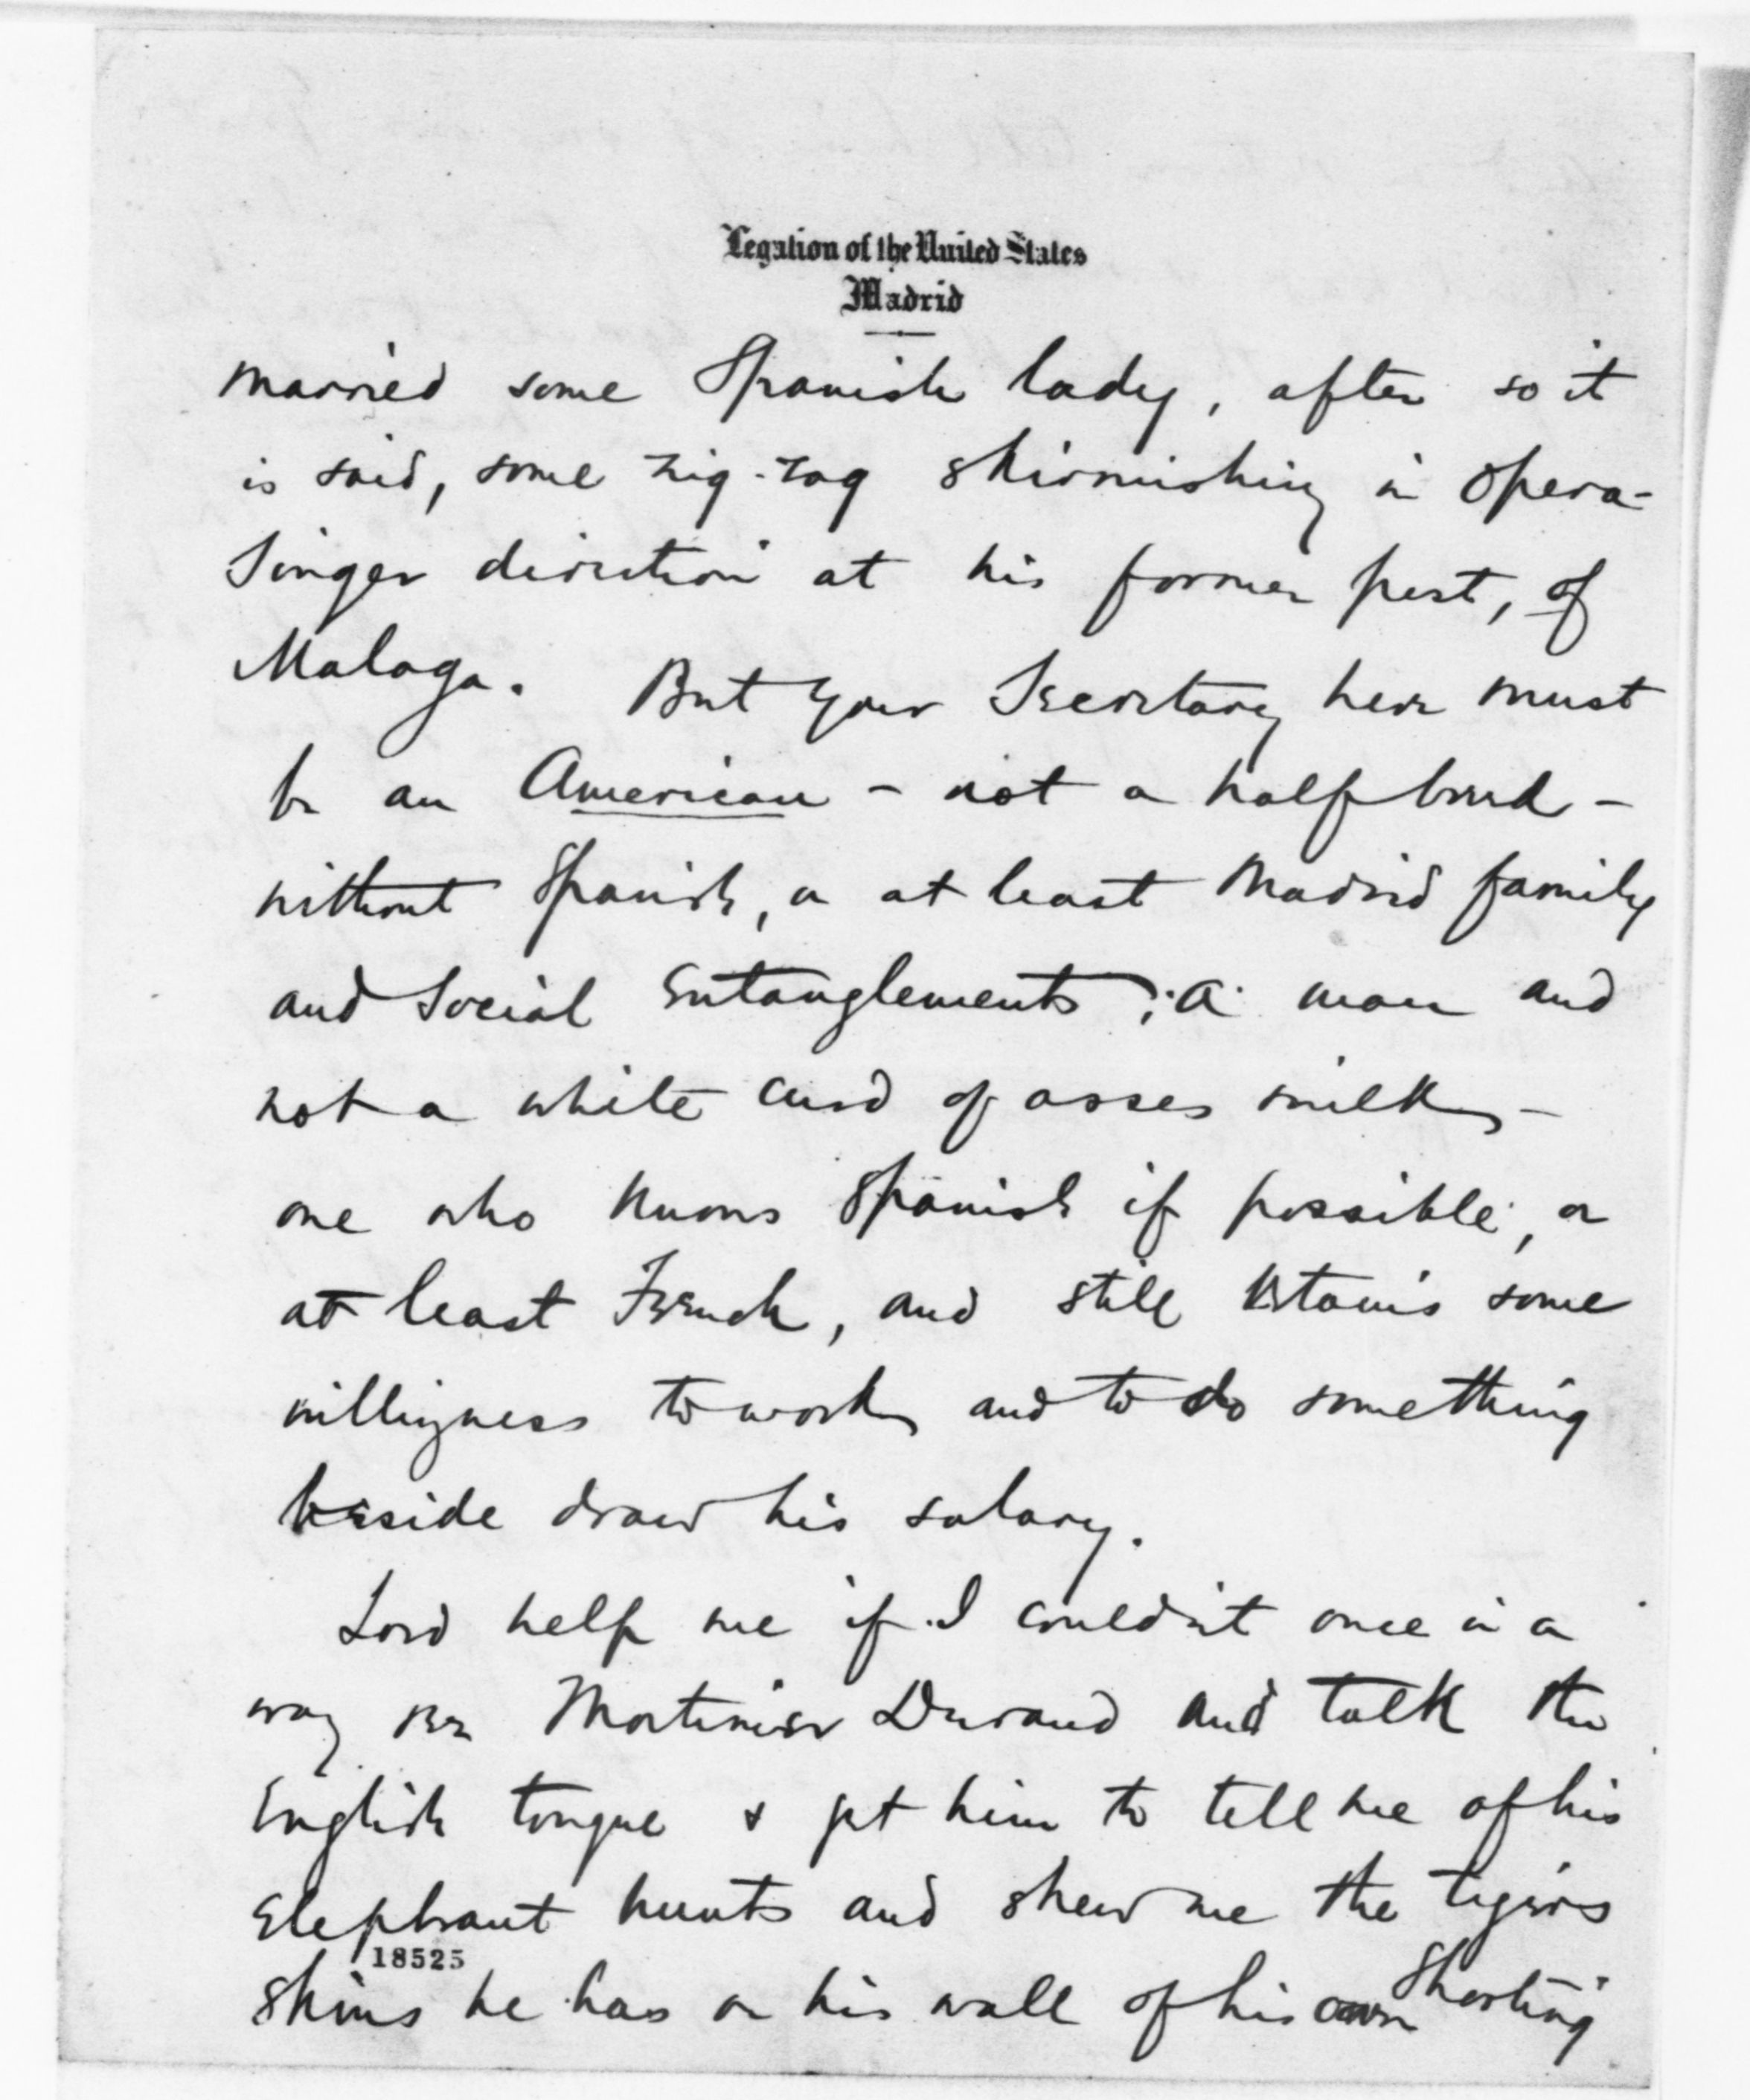 Legation of the United States
Madrid
married some Spanish lady, after so it
is said, some zig-zag skirmishing in opera-
singer direction at his former post, of
Malaga. But your Secretary here must
be an American - not a half bred -
without Spanish, or at least Madrid family
and social entanglements; a man and
not a white curd of asses milk -
one who knows Spanish if possible, or
at least French, and still retains some
willingness to work and to do something
beside draw his salary.
Lord help me if I couldn't once in a
way see Mortimer Durand and talk the
English tongue & get him to tell me of his
Elephant hunts and shew me the tigers
18525
skins he has on his wall of his own shooting